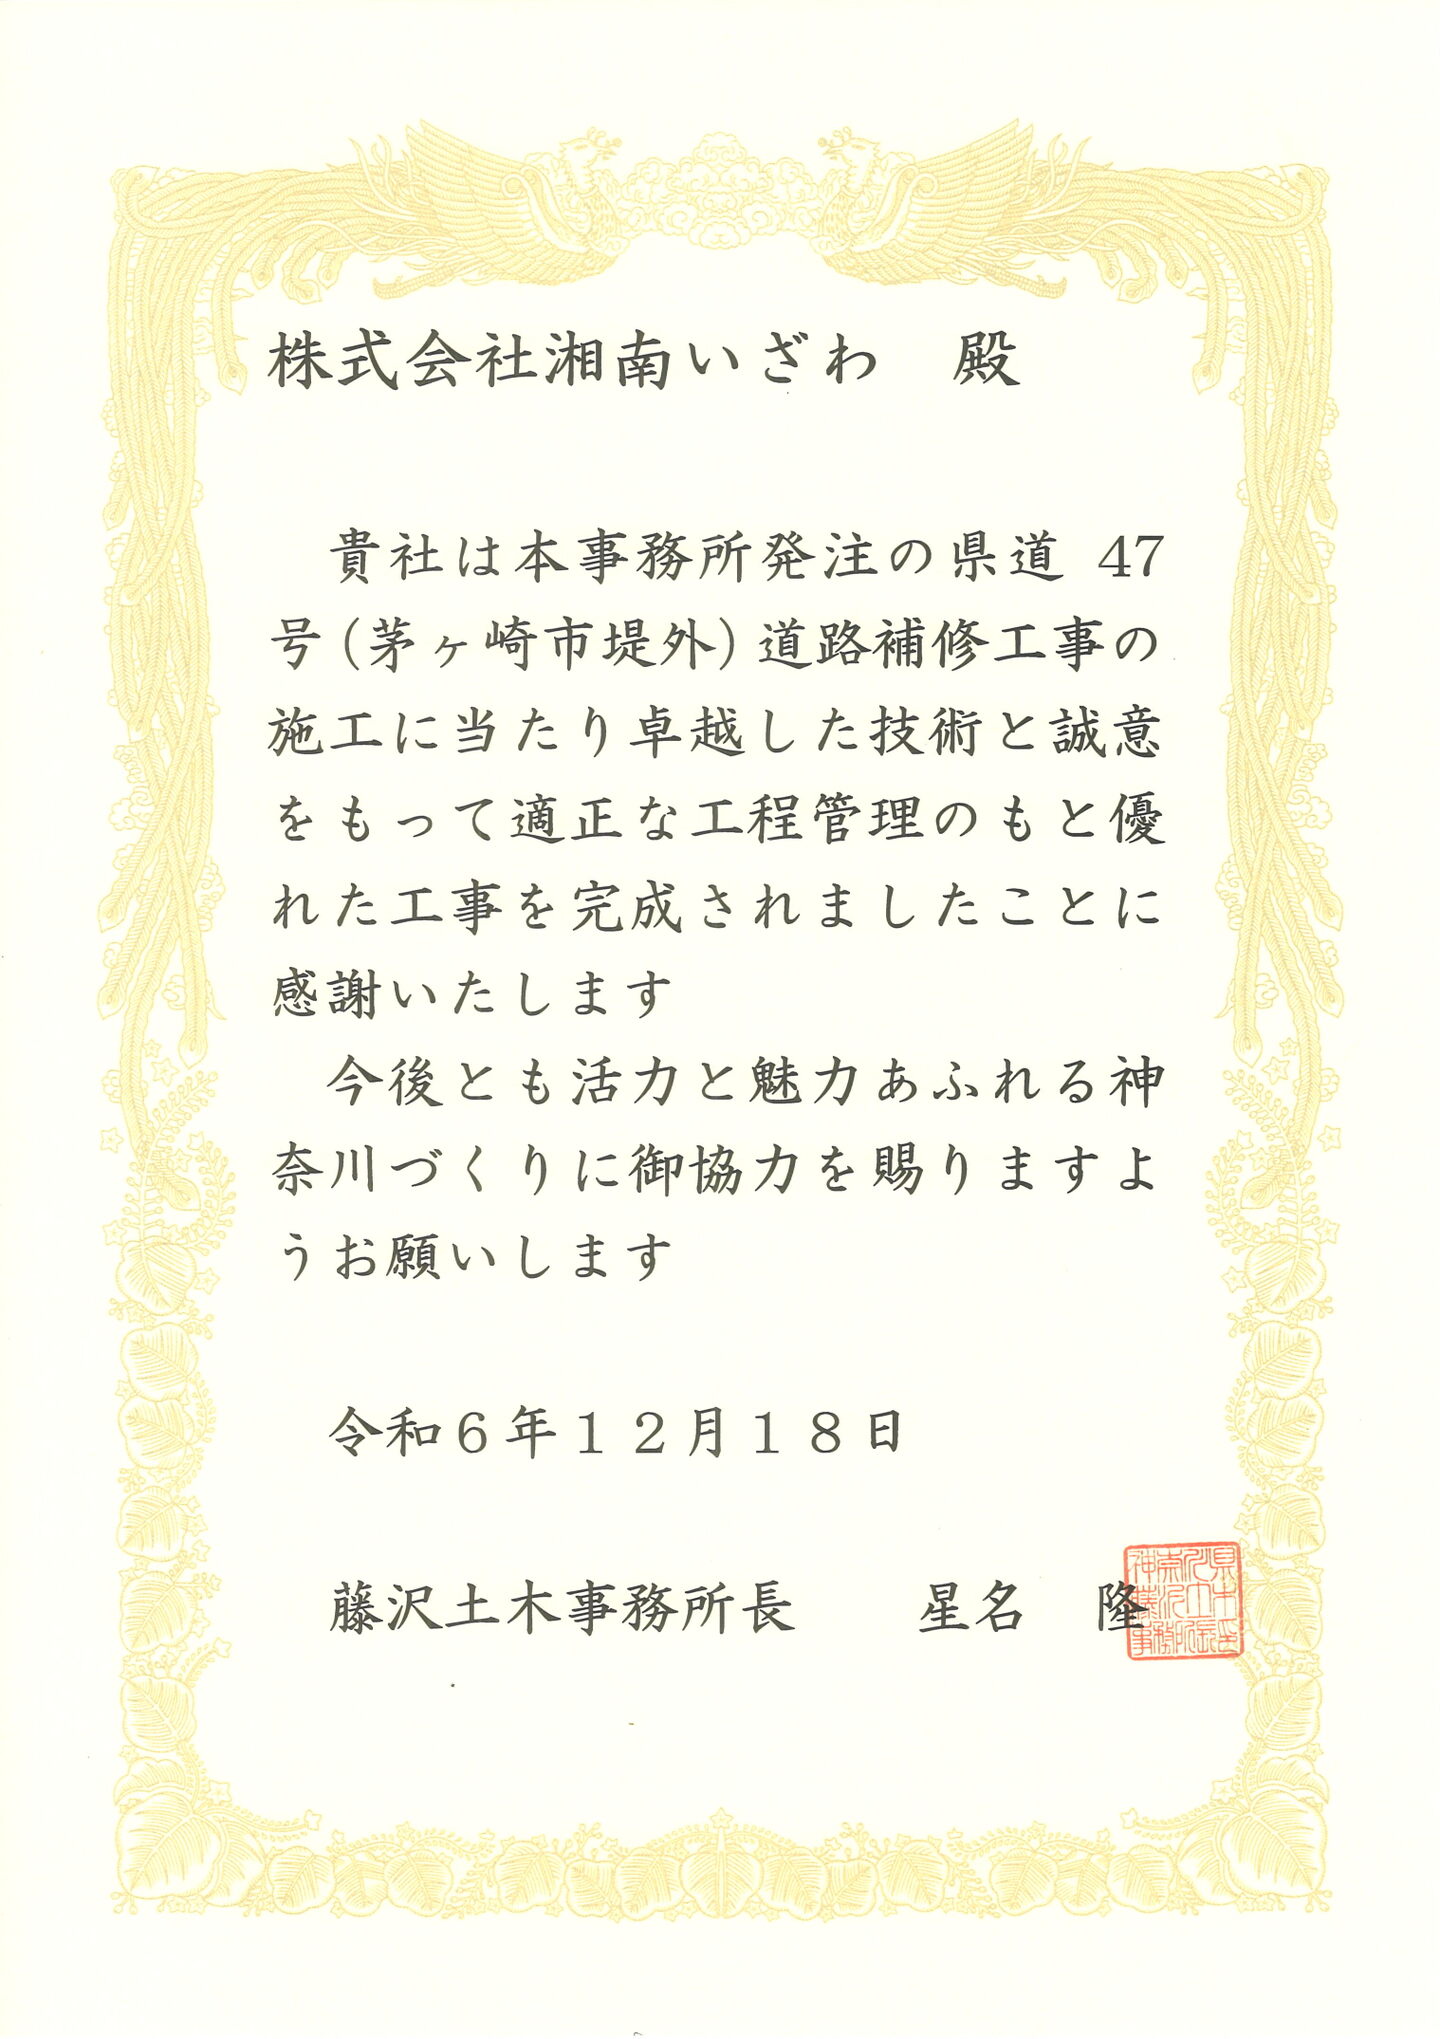 株式会社湘南いざわ　殿
貴社は本事務所発注の県道 47
号(茅ヶ崎市堤外)道路補修工事の
施工に当たり卓越した技術と誠意
をもって適正な工程管理のもと優
れた工事を完成されましたことに
感謝いたします
今後とも活力と魅力あふれる神
奈川づくりに御協力を賜りますよ
うお願いします
令和６年１２月１８日
藤沢土木事務所長　　星名　隆